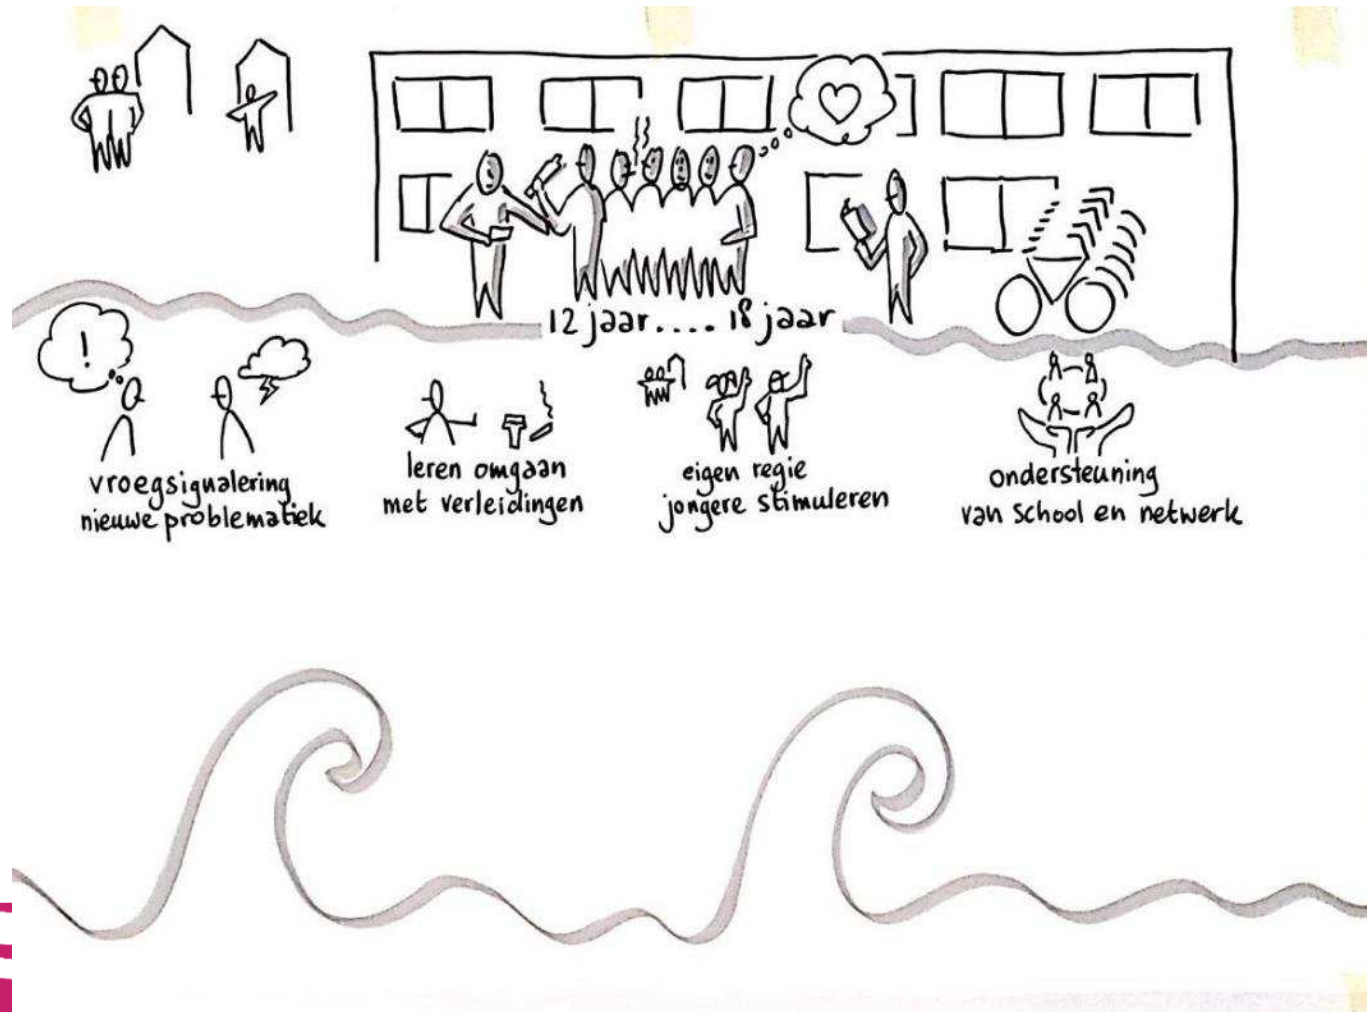 12 jaar.... 18 jaar
!
vroegsignalering
nieuwe problematiek
leren omgaan
met verleidingen
eigen regie
jongere stimuleren
ondersteuning
van school en netwerk